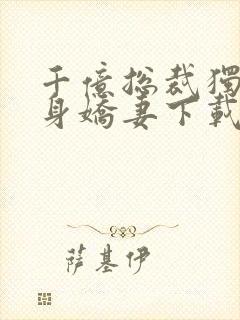 千億總裁獨
身嬌妻下載
萨基伊